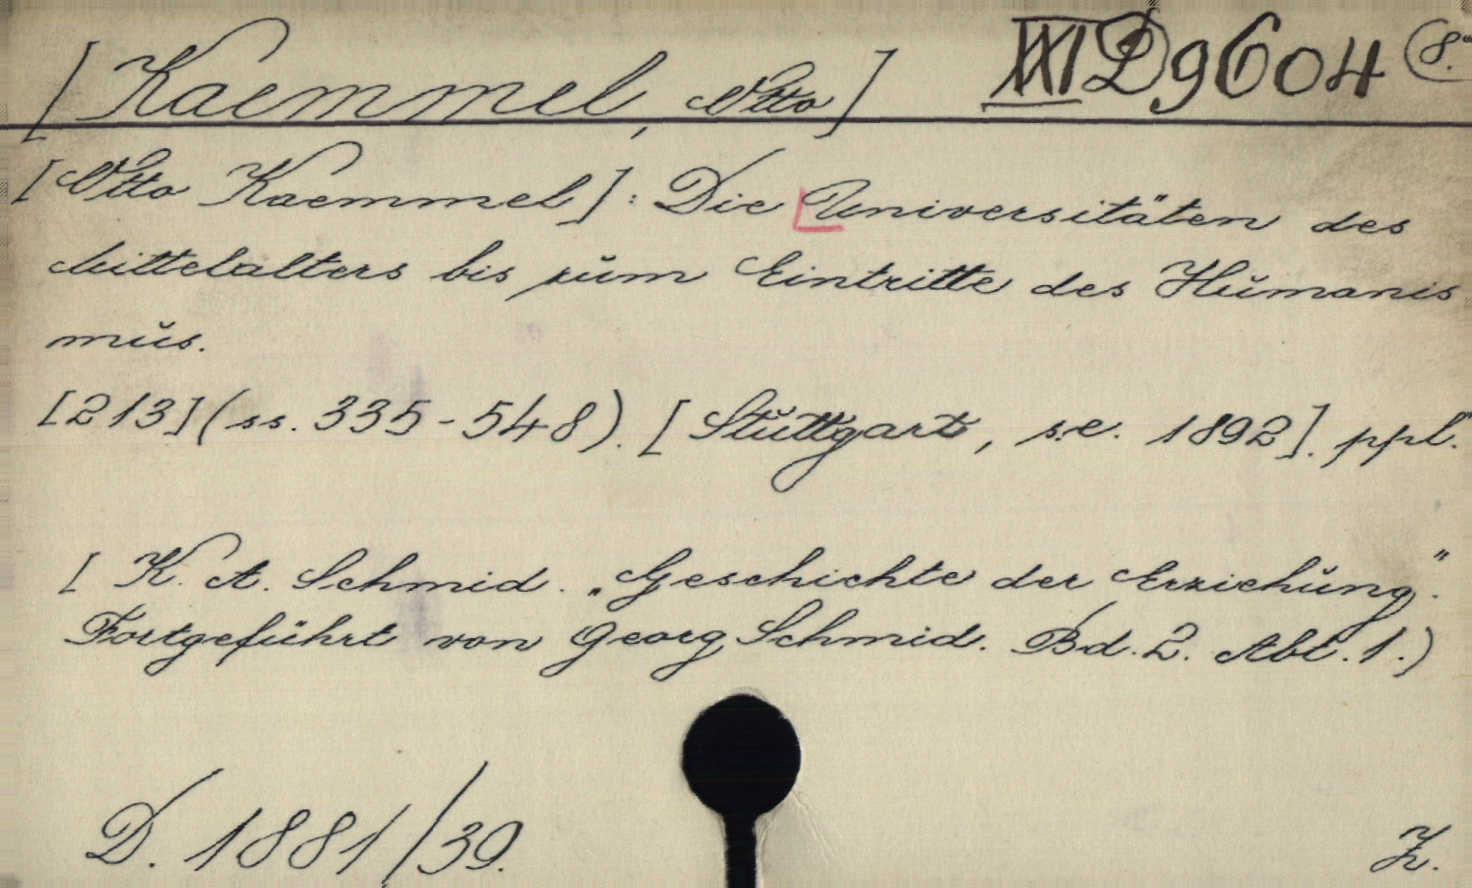 [Kaemmel, Otto] XXI D 9604 8.
[Otto Kaemmel]: Die Universitäten des
Mittelalters bis zum Eintritte des Humanis
mus.
[213] (ss. 335-548). [Stuttgart, s.e. 1892]. ppl.
[K. A. Schmid. „Geschichte der Erziehung".
Fortgeführt von Georg Schmid. Bd. 2. Abt. 1.)
D. 1881/39. Z.